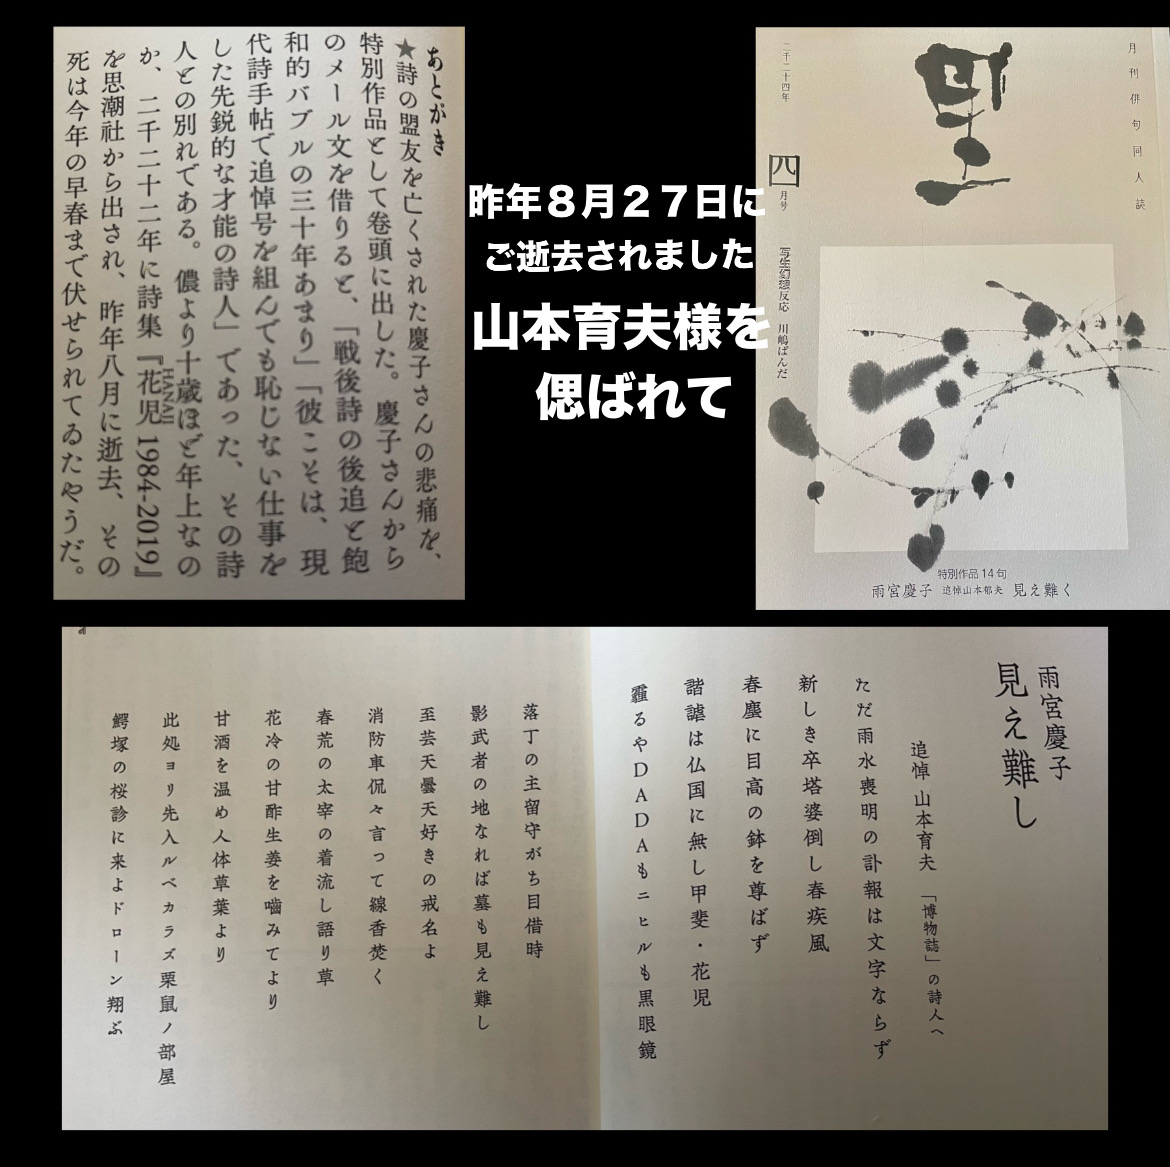 あとがき
★詩の盟友を亡くされた慶子さんの悲痛を、
特別作品として巻頭に出した。慶子さんから
のメール文を借りると、「戦後詩の後追と飽
和的バブルの三十年あまり」「彼こそは、現
代詩手帖で追悼号を組んでも恥じない仕事を
した先鋭的な才能の詩人」であった、その詩
人との別れである。儂より十歳ほど年上なの
か、二千二十二年に詩集『花児HANAJI 1984-2019』
を思潮社から出され、昨年八月に逝去、その
死は今年の早春まで伏せられてゐたやうだ。
昨年８月２７日に
ご逝去されました
山本育夫様を
偲ばれて
月刊俳句同人誌
二千二十四年
四月号
写生幻想反応 川嶋ぱんだ
特別作品14句
雨宮慶子 追悼山本郁夫 見え難く
雨宮慶子
見え難し
追悼 山本育夫 「博物誌」の詩人へ
ただ雨水喪明の訃報は文字ならず
新しき卒塔婆倒し春疾風
春塵に目高の鉢を尊ばず
諧謔は仏国に無し甲斐・花児
霾るやDADAもニヒルも黒眼鏡
落丁の主留守がち目借時
影武者の地なれば墓も見え難し
至芸天曇天好きの戒名よ
消防車侃々言って線香焚く
春荒の太宰の着流し語り草
花冷の甘酢生姜を嚙みてより
甘酒を温め人体草葉より
此処ヨリ先入ルベカラズ栗鼠ノ部屋
鰐塚の桜診に来よドローン翔ぶ